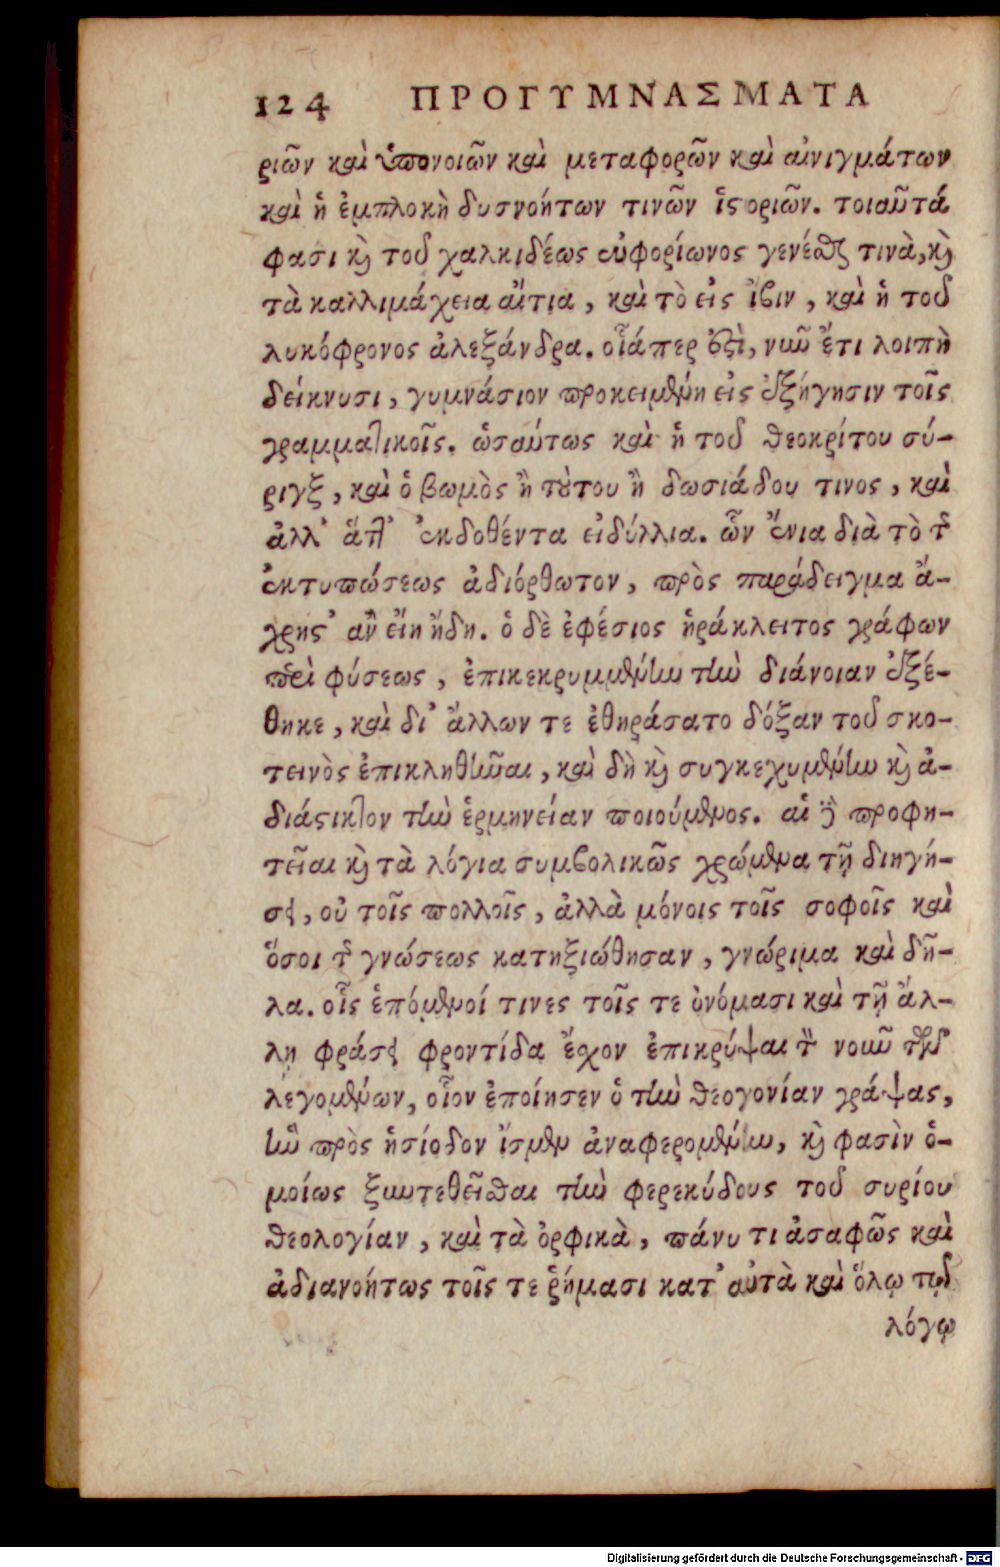 124 ΠΡΟΓΥΜΝΑΣΜΑΤΑ
ριῶν καὶ ὑπονοιῶν καὶ μεταφορῶν καὶ αἰνιγμάτων
καὶ ἡ ἐμπλοκὴ δυσνοήτων τινῶν ἱστοριῶν. τοιαῦτά
φασι καὶ τοῦ χαλκιδέως εὐφορίωνος γενέσθαι τινὰ, καὶ
τὰ καλλιμάχεια αἴτια, καὶ τὸ εἰς ἴβιν, καὶ ἡ τοῦ
λυκόφρονος ἀλεξάνδρα. οἷάπερ ἐστὶ, νῦν ἔτι λοιπὴ
δείκνυσι, γυμνάσιον προκειμένη εἰς ἐξήγησιν τοῖς
γραμματικοῖς. ὡσαύτως καὶ ἡ τοῦ θεοκρίτου σύ-
ριγξ, καὶ ὁ βωμὸς ἢ τούτου ἢ δωσιάδου τινος, καὶ
ἀλλ' ἅττ' ἐκδοθέντα εἰδύλλια. ὧν ἔνια διὰ τὸ τῆς
ἐκτυπώσεως ἀδιόρθωτον, πρὸς παράδειγμα ἄ-
χρης' ἂν εἴη ἤδη. ὁ δὲ ἐφέσιος ἡράκλειτος γράφων
περὶ φύσεως, ἐπικεκρυμμένην τὴν διάνοιαν ἐξέ-
θηκε, καὶ δι' ἄλλων τε ἐθηράσατο δόξαν τοῦ σκο-
τεινὸς ἐπικληθῆναι, καὶ δὴ καὶ συγκεχυμένην καὶ ἀ-
διάστικτον τὴν ἑρμηνείαν ποιούμενος. αἱ δὲ προφη-
τεῖαι καὶ τὰ λόγια συμβολικῶς χρώμενα τῇ διηγή-
σει, οὐ τοῖς πολλοῖς, ἀλλὰ μόνοις τοῖς σοφοῖς καὶ
ὅσοι τῆς γνώσεως κατηξιώθησαν, γνώριμα καὶ δῆ-
λα. οἷς ἑπόμενοί τινες τοῖς τε ὀνόμασι καὶ τῇ ἄλ-
λῃ φράσει φροντίδα ἔχον ἐπικρύψαι τὸν νοῦν τῶν
λεγομένων, οἷον ἐποίησεν ὁ τὴν θεογονίαν γράψας,
ἣν πρὸς ἡσίοδον ἴσμεν ἀναφερομένην, καὶ φασὶν ὁ-
μοίως ξυντεθεῖσθαι τὴν φερεκύδους τοῦ συρίου
θεολογίαν, καὶ τὰ ὀρφικὰ, πάνυ τι ἀσαφῶς καὶ
ἀδιανοήτως τοῖς τε ῥήμασι κατ' αὐτὰ καὶ ὅλῳ τῷ
λόγῳ
Digitalisierung gefördert durch die Deutsche Forschungsgemeinschaft - DFG